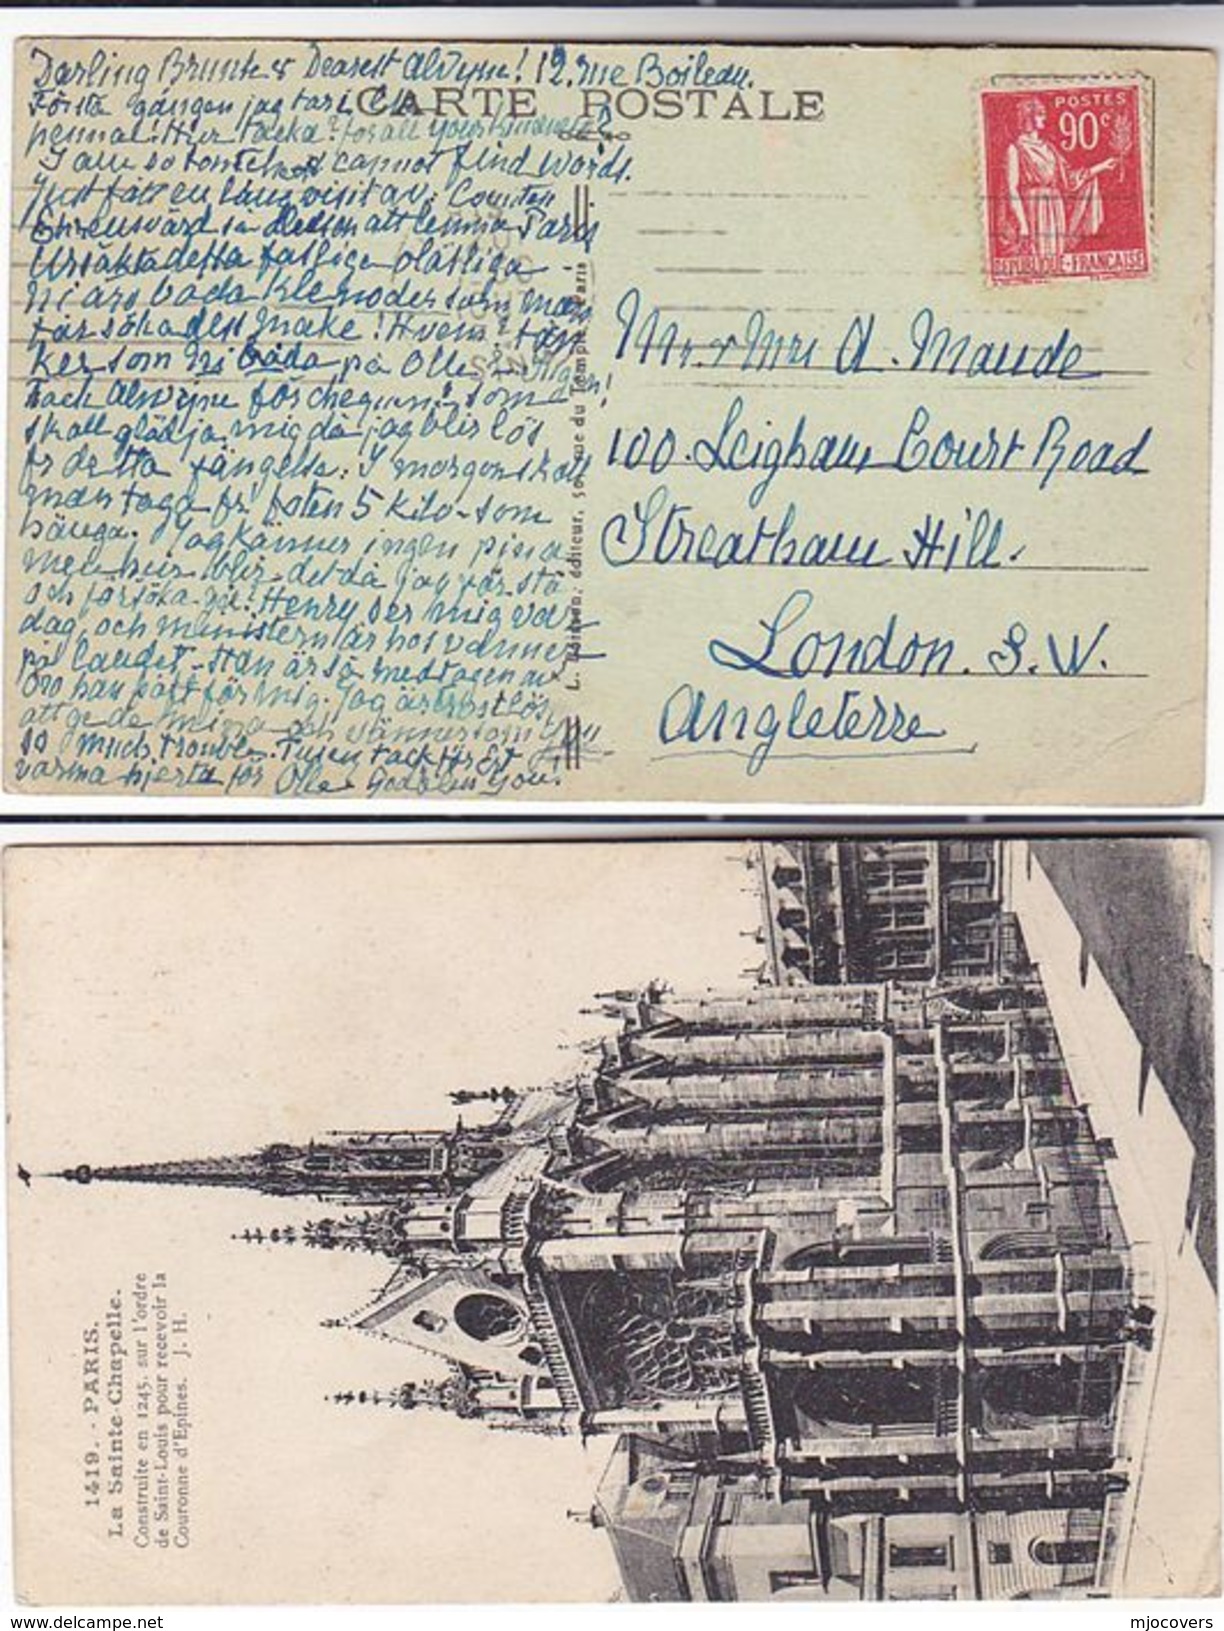 Darling Brunte & Dearest Alvyne! 12. rue Boileau.
CARTE POSTALE
Första gången jag tar i
penna! Hur tacka? for all your kindness?
I am so cannot find words.
Just fått en lång visit av: Comten
Ehrensvärd så ledsen att lemna Paris
Ursäkta detta fatliga
Ni äro båda klenoder som man
får söka dess make! Hvem? tän
ker som Ni båda på Olle
Tack Alvyne för chequen? som
skall glädja mig då jag blir lös
fr detta fängelse. I morgon skall
man taga fr foten 5 kilo som
hänga. Jag känner ingen pina
men hur blir det då jag får stå
och försöka gå. Henry ser mig var
dag, och ministern är hos vänner
på landet. Han är så medtagen av
oro han haft för mig. Jag är tröstlös
att ge de mina och vänner som You
so much trouble. Tusen tack för Ert
varma hjerta för Olle God bless You!
POSTES
90c
REPUBLIQUE-FRANÇAISE
Mr & Mrs A. Maude
100. Leigham Court Road
Streatham Hill.
London. S. W.
Angleterre
1419. - PARIS.
La Sainte-Chapelle.
Construite en 1245, sur l'ordre
de Saint-Louis pour recevoir la
Couronne d'Epines. J. H.
mjocovers